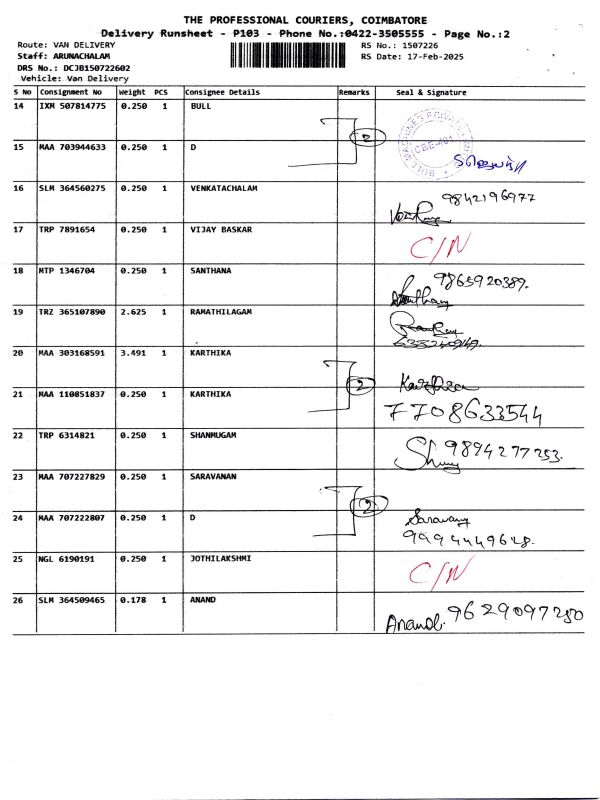 THE PROFESSIONAL COURIERS, COIMBATORE
Delivery Runsheet - P103 - Phone No.:0422-3505555 - Page No.:2
Route: VAN DELIVERY
RS No.: 1507226
Staff: ARUNACHALAM
RS Date: 17-Feb-2025
DRS No.: DCJB150722602
Vehicle: Van Delivery
S No Consignment No Weight PCS Consignee Details Remarks Seal & Signature
14 IXM 507814775 0.250 1 BULL
2
BULL MACHINES PRIVATE
CBE-401
15 MAA 703944633 0.250 1 D
16 SLM 364560275 0.250 1 VENKATACHALAM
9842196977
17 TRP 7891654 0.250 1 VIJAY BASKAR C/N
18 MTP 1346704 0.250 1 SANTHANA
9865920389.
Santhany
19 TRZ 365107890 2.625 1 RAMATHILAGAM
20 MAA 303168591 3.491 1 KARTHIKA
2 Karthika
21 MAA 110851837 0.250 1 KARTHIKA
7708633544
22 TRP 6314821 0.250 1 SHANMUGAM
9894277253.
23 MAA 707227829 0.250 1 SARAVANAN
2
24 MAA 707222807 0.250 1 D
Saravany
9994449628.
25 NGL 6190191 0.250 1 JOTHILAKSHMI C/N
26 SLM 364509465 0.178 1 ANAND
Anand. 9629097250